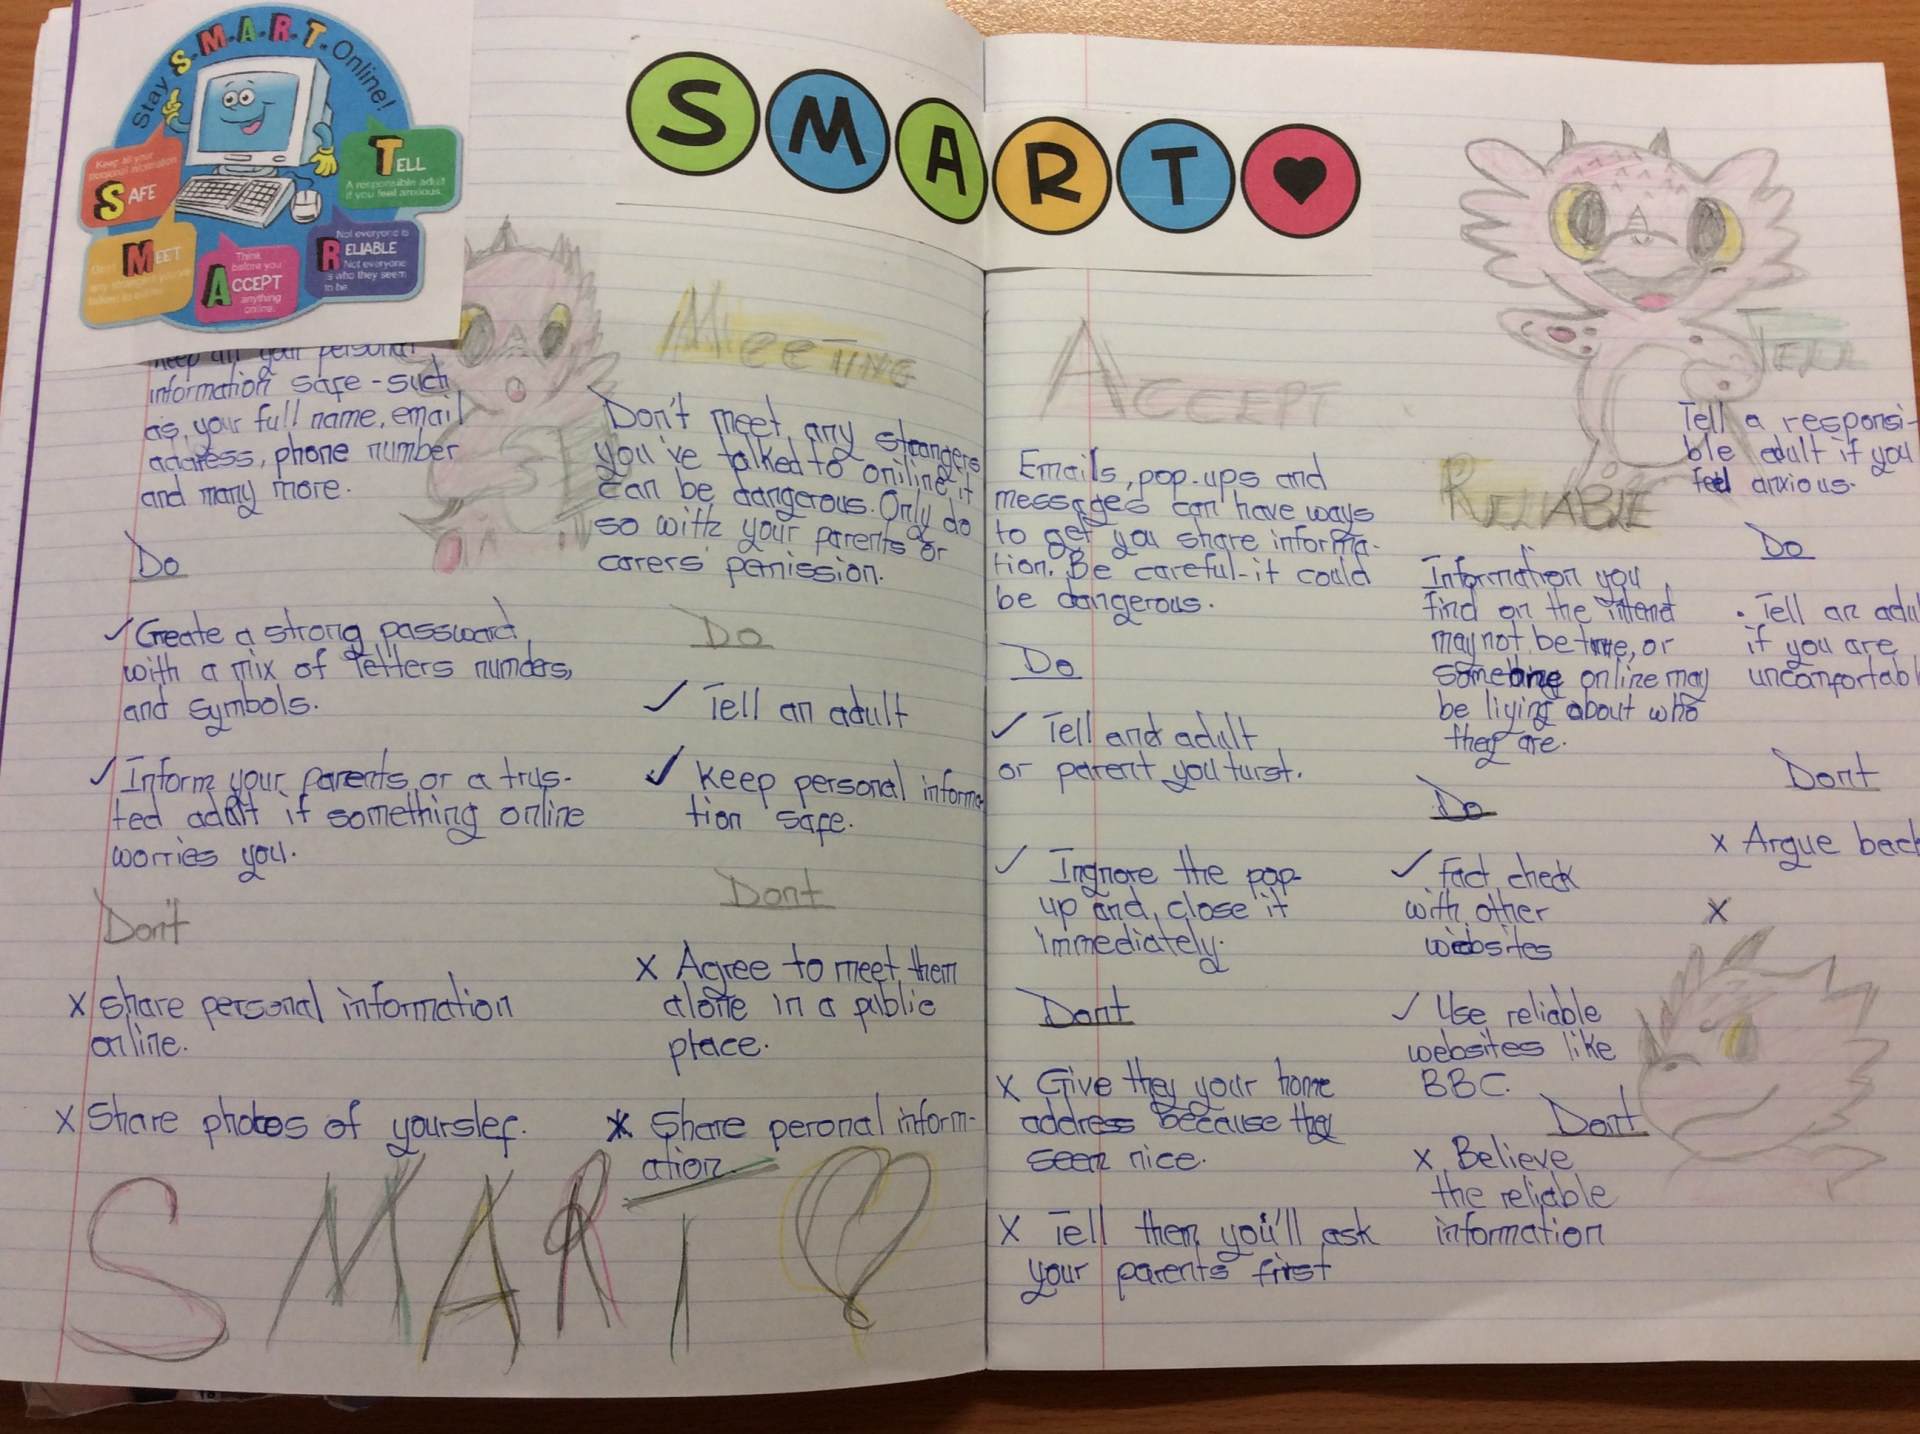 Stay S.M.A.R.T. Online!
Keep all your
personal information
SAFE
MEET
Think
before you
ACCEPT
anything
online.
Not everyone is
RELIABLE
Not everyone
is who they seem
to be
TELL
A responsible adult
if you feel anxious.
SMART
keep all your personal
information safe - such
as, your full name, email
address, phone number
and many more.
Do
✓ Create a strong password
with a mix of letters numders,
and symbols.
✓ Inform your parents or a trus-
ted adult if something online
worries you.
Don't
x share personal information
online.
x Share photos of yourslef.
Meeting
Don't meet any strangers
you've talked to oniline it
can be dangerous. Only do
so with your parents or
carers' pemission.
Do
✓ Tell an adult
✓ Keep personal informa
tion safe.
Dont
x Agree to meet them
alone in a public
place.
x Share peronal inform-
ation
SMART
Accept
Emails, pop-ups and
messages can have ways
to get you share informa-
tion. Be careful - it could
be dangerous.
Do
✓ Tell and adult
or parent you turst.
✓ Ingnore the pop-
up and, close it
immediately.
Dont
x Give they your home
address because they
seen nice.
x Tell then you'll ask
your parents first
Reliable
Information you
find on the
may not be true, or
someone online may
be liying about who
they are.
Do
✓ Fact check
with other
websites
✓ Use reliable
websites like
BBC.
Don't
x Believe
the reliable
information
Tell
Tell a responsi-
ble adult if you
feel anxious.
Do
• Tell an adul
if you are
uncomfortabl
Dont
x Argue back
x